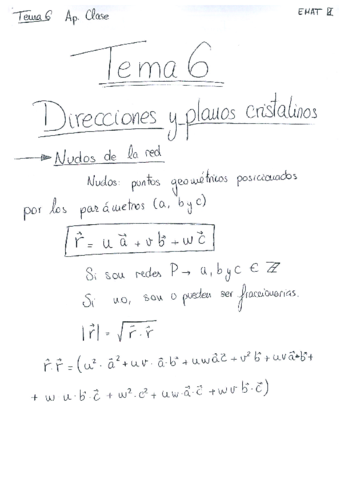 Tema 6 Ap. Clase EMAT II
Tema 6
Direcciones y planos cristalinos
→ Nudos de la red
Nudos: puntos geométricos posicionados
por los parámetros (a, b y c)
r⃗ = u a⃗ + v b⃗ + w c⃗
Si son redes P → a, b y c ∈ ℤ
Si no, son o pueden ser fraccionarias.
|r⃗| = √(r⃗ · r⃗)
r⃗·r⃗ = (u² · a⃗² + uv · a⃗·b⃗ + uwa⃗c⃗ + v²b⃗ + uva⃗·b⃗ +
+ w u·b⃗·c⃗ + w²·c² + uw·a⃗·c⃗ + wvb⃗·c⃗)